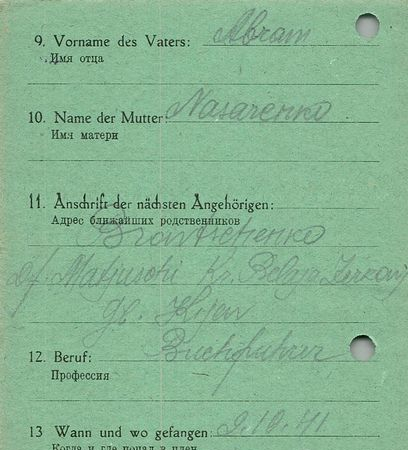 9. Vorname des Vaters: Abram
Имя отца
10. Name der Mutter: Nasarenko
Имя матери
11. Anschrift der nächsten Angehörigen:
Адрес ближайших родственников
Df. Matjuschi Kr. Belaja Zerkow
Kijew
12. Beruf: Buchhalter
Профессия
13 Wann und wo gefangen: 9.10.41.
Когда и где попал в плен